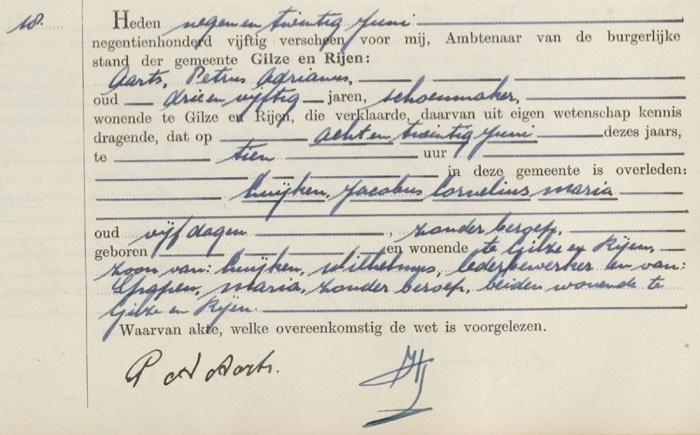 18.
Heden negen en twintig Juni
negentienhonderd vijftig verscheen voor mij, Ambtenaar van de burgerlijke
stand der gemeente Gilze en Rijen:
Aarts, Petrus Adrianus,
oud drie en vijftig jaren, schoenmaker,
wonende te Gilze en Rijen, die verklaarde, daarvan uit eigen wetenschap kennis
dragende, dat op acht en twintig Juni dezes jaars,
te tien uur in deze gemeente is overleden:
Cuijken, Jacobus Cornelius Maria
oud vijf dagen, zonder beroep,
geboren en wonende te Gilze en Rijen,
zoon van: Cuijken, Wilhelmus, lederbewerker en van:
Maria, zonder beroep, beiden wonende te
Gilze en Rijen.
Waarvan akte, welke overeenkomstig de wet is voorgelezen.
P A Aarts.